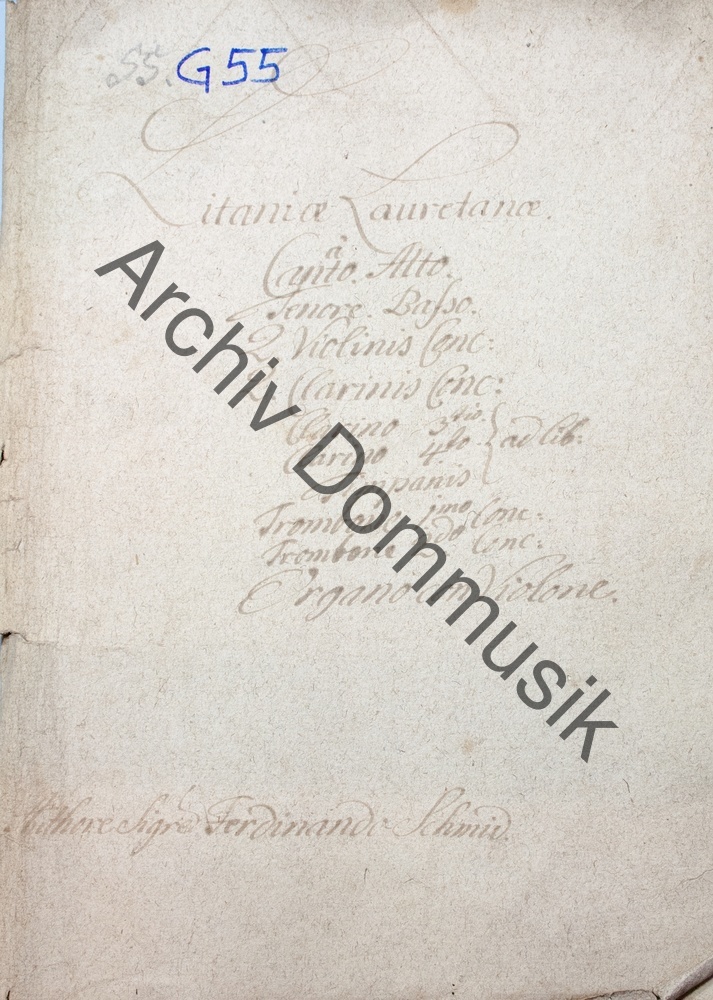 G55
Litaniæ Lauretanæ.
à
Canto. Alto.
Tenore. Basso.
2 Violinis Conc:
2 Clarinis Conc:
Clarino 3tio.
Clarino 4to. ad lib:
Tympanis
Trombone 1mo Conc:
Trombone 2do Conc:
Organo con Violone.
Authore Sigre Ferdinando Schmid.
Archiv Dommusik